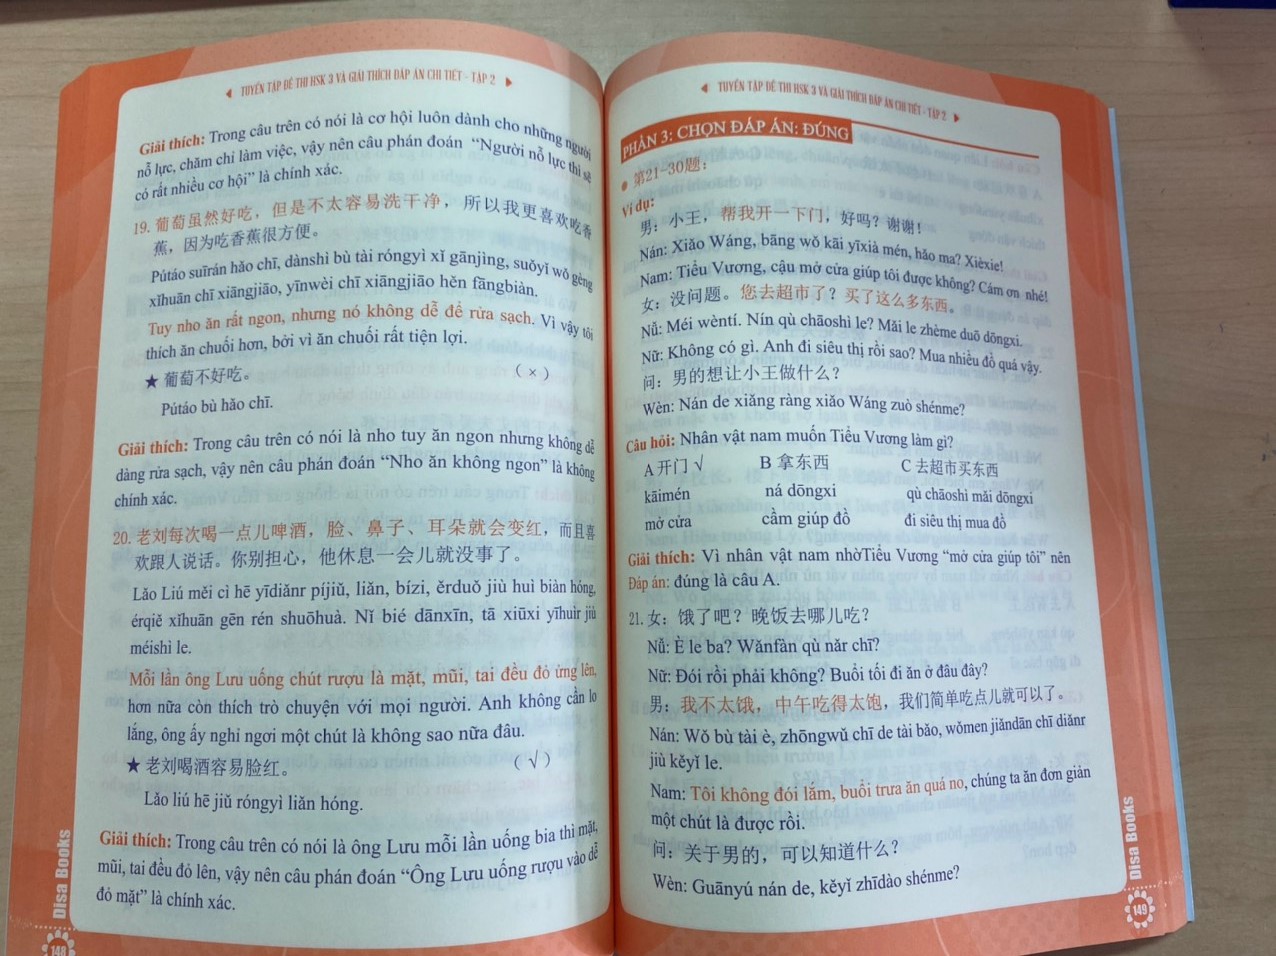 TUYỂN TẬP ĐỀ THI HSK 3 VÀ GIẢI THÍCH ĐÁP ÁN CHI TIẾT - TẬP 2
Giải thích: Trong câu trên có nói là cơ hội luôn dành cho những người
nỗ lực, chăm chỉ làm việc, vậy nên câu phán đoán “Người nỗ lực thì sẽ
có rất nhiều cơ hội” là chính xác.
19. 葡萄虽然好吃，但是不太容易洗干净，所以我更喜欢吃香
蕉，因为吃香蕉很方便。
Pútáo suīrán hǎo chī, dànshì bù tài róngyì xǐ gānjìng, suǒyǐ wǒ gèng
xǐhuān chī xiāngjiāo, yīnwèi chī xiāngjiāo hěn fāngbiàn.
Tuy nho ăn rất ngon, nhưng nó không dễ để rửa sạch. Vì vậy tôi
thích ăn chuối hơn, bởi vì ăn chuối rất tiện lợi.
★ 葡萄不好吃。 ( × )
Pútáo bù hǎo chī.
Giải thích: Trong câu trên có nói là nho tuy ăn ngon nhưng không dễ
dàng rửa sạch, vậy nên câu phán đoán “Nho ăn không ngon” là không
chính xác.
20. 老刘每次喝一点儿啤酒，脸、鼻子、耳朵就会变红，而且喜
欢跟人说话。你别担心，他休息一会儿就没事了。
Lǎo Liú měi cì hē yīdiǎnr píjiǔ, liǎn, bízi, ěrduǒ jiù huì biàn hóng,
érqiě xǐhuān gēn rén shuōhuà. Nǐ bié dānxīn, tā xiūxi yīhuǐr jiù
méishì le.
Mỗi lần ông Lưu uống chút rượu là mặt, mũi, tai đều đỏ ửng lên,
hơn nữa còn thích trò chuyện với mọi người. Anh không cần lo
lắng, ông ấy nghỉ ngơi một chút là không sao nữa đâu.
★ 老刘喝酒容易脸红。 ( √ )
Lǎo liú hē jiǔ róngyì liǎn hóng.
Giải thích: Trong câu trên có nói là ông Lưu mỗi lần uống bia thì mặt,
mũi, tai đều đỏ lên, vậy nên câu phán đoán “Ông Lưu uống rượu vào dễ
đỏ mặt” là chính xác.
Disa Books
148
TUYỂN TẬP ĐỀ THI HSK 3 VÀ GIẢI THÍCH ĐÁP ÁN CHI TIẾT - TẬP 2
PHẦN 3: CHỌN ĐÁP ÁN: ĐÚNG
第21-30题：
Ví dụ:
男：小王，帮我开一下门，好吗？谢谢！
Nán: Xiǎo Wáng, bāng wǒ kāi yīxià mén, hǎo ma? Xièxie!
Nam: Tiểu Vương, cậu mở cửa giúp tôi được không? Cám ơn nhé!
女：没问题。您去超市了？买了这么多东西。
Nǚ: Méi wèntí. Nín qù chāoshì le? Mǎi le zhème duō dōngxi.
Nữ: Không có gì. Anh đi siêu thị rồi sao? Mua nhiều đồ quá vậy.
问：男的想让小王做什么？
Wèn: Nán de xiǎng ràng xiǎo Wáng zuò shénme?
Câu hỏi: Nhân vật nam muốn Tiểu Vương làm gì?
A 开门 √ B 拿东西 C 去超市买东西
kāimén ná dōngxi qù chāoshì mǎi dōngxi
mở cửa cầm giúp đồ đi siêu thị mua đồ
Giải thích: Vì nhân vật nam nhờTiểu Vương “mở cửa giúp tôi” nên
Đáp án: đúng là câu A.
21. 女：饿了吧？晚饭去哪儿吃？
Nǚ: È le ba? Wǎnfàn qù nǎr chī?
Nữ: Đói rồi phải không? Buổi tối đi ăn ở đâu đây?
男：我不太饿，中午吃得太饱，我们简单吃点儿就可以了。
Nán: Wǒ bù tài è, zhōngwǔ chī de tài bǎo, wǒmen jiǎndān chī diǎnr
jiù kěyǐ le.
Nam: Tôi không đói lắm, buổi trưa ăn quá no, chúng ta ăn đơn giản
một chút là được rồi.
问：关于男的，可以知道什么？
Wèn: Guānyú nán de, kěyǐ zhīdào shénme?
Disa Books
149